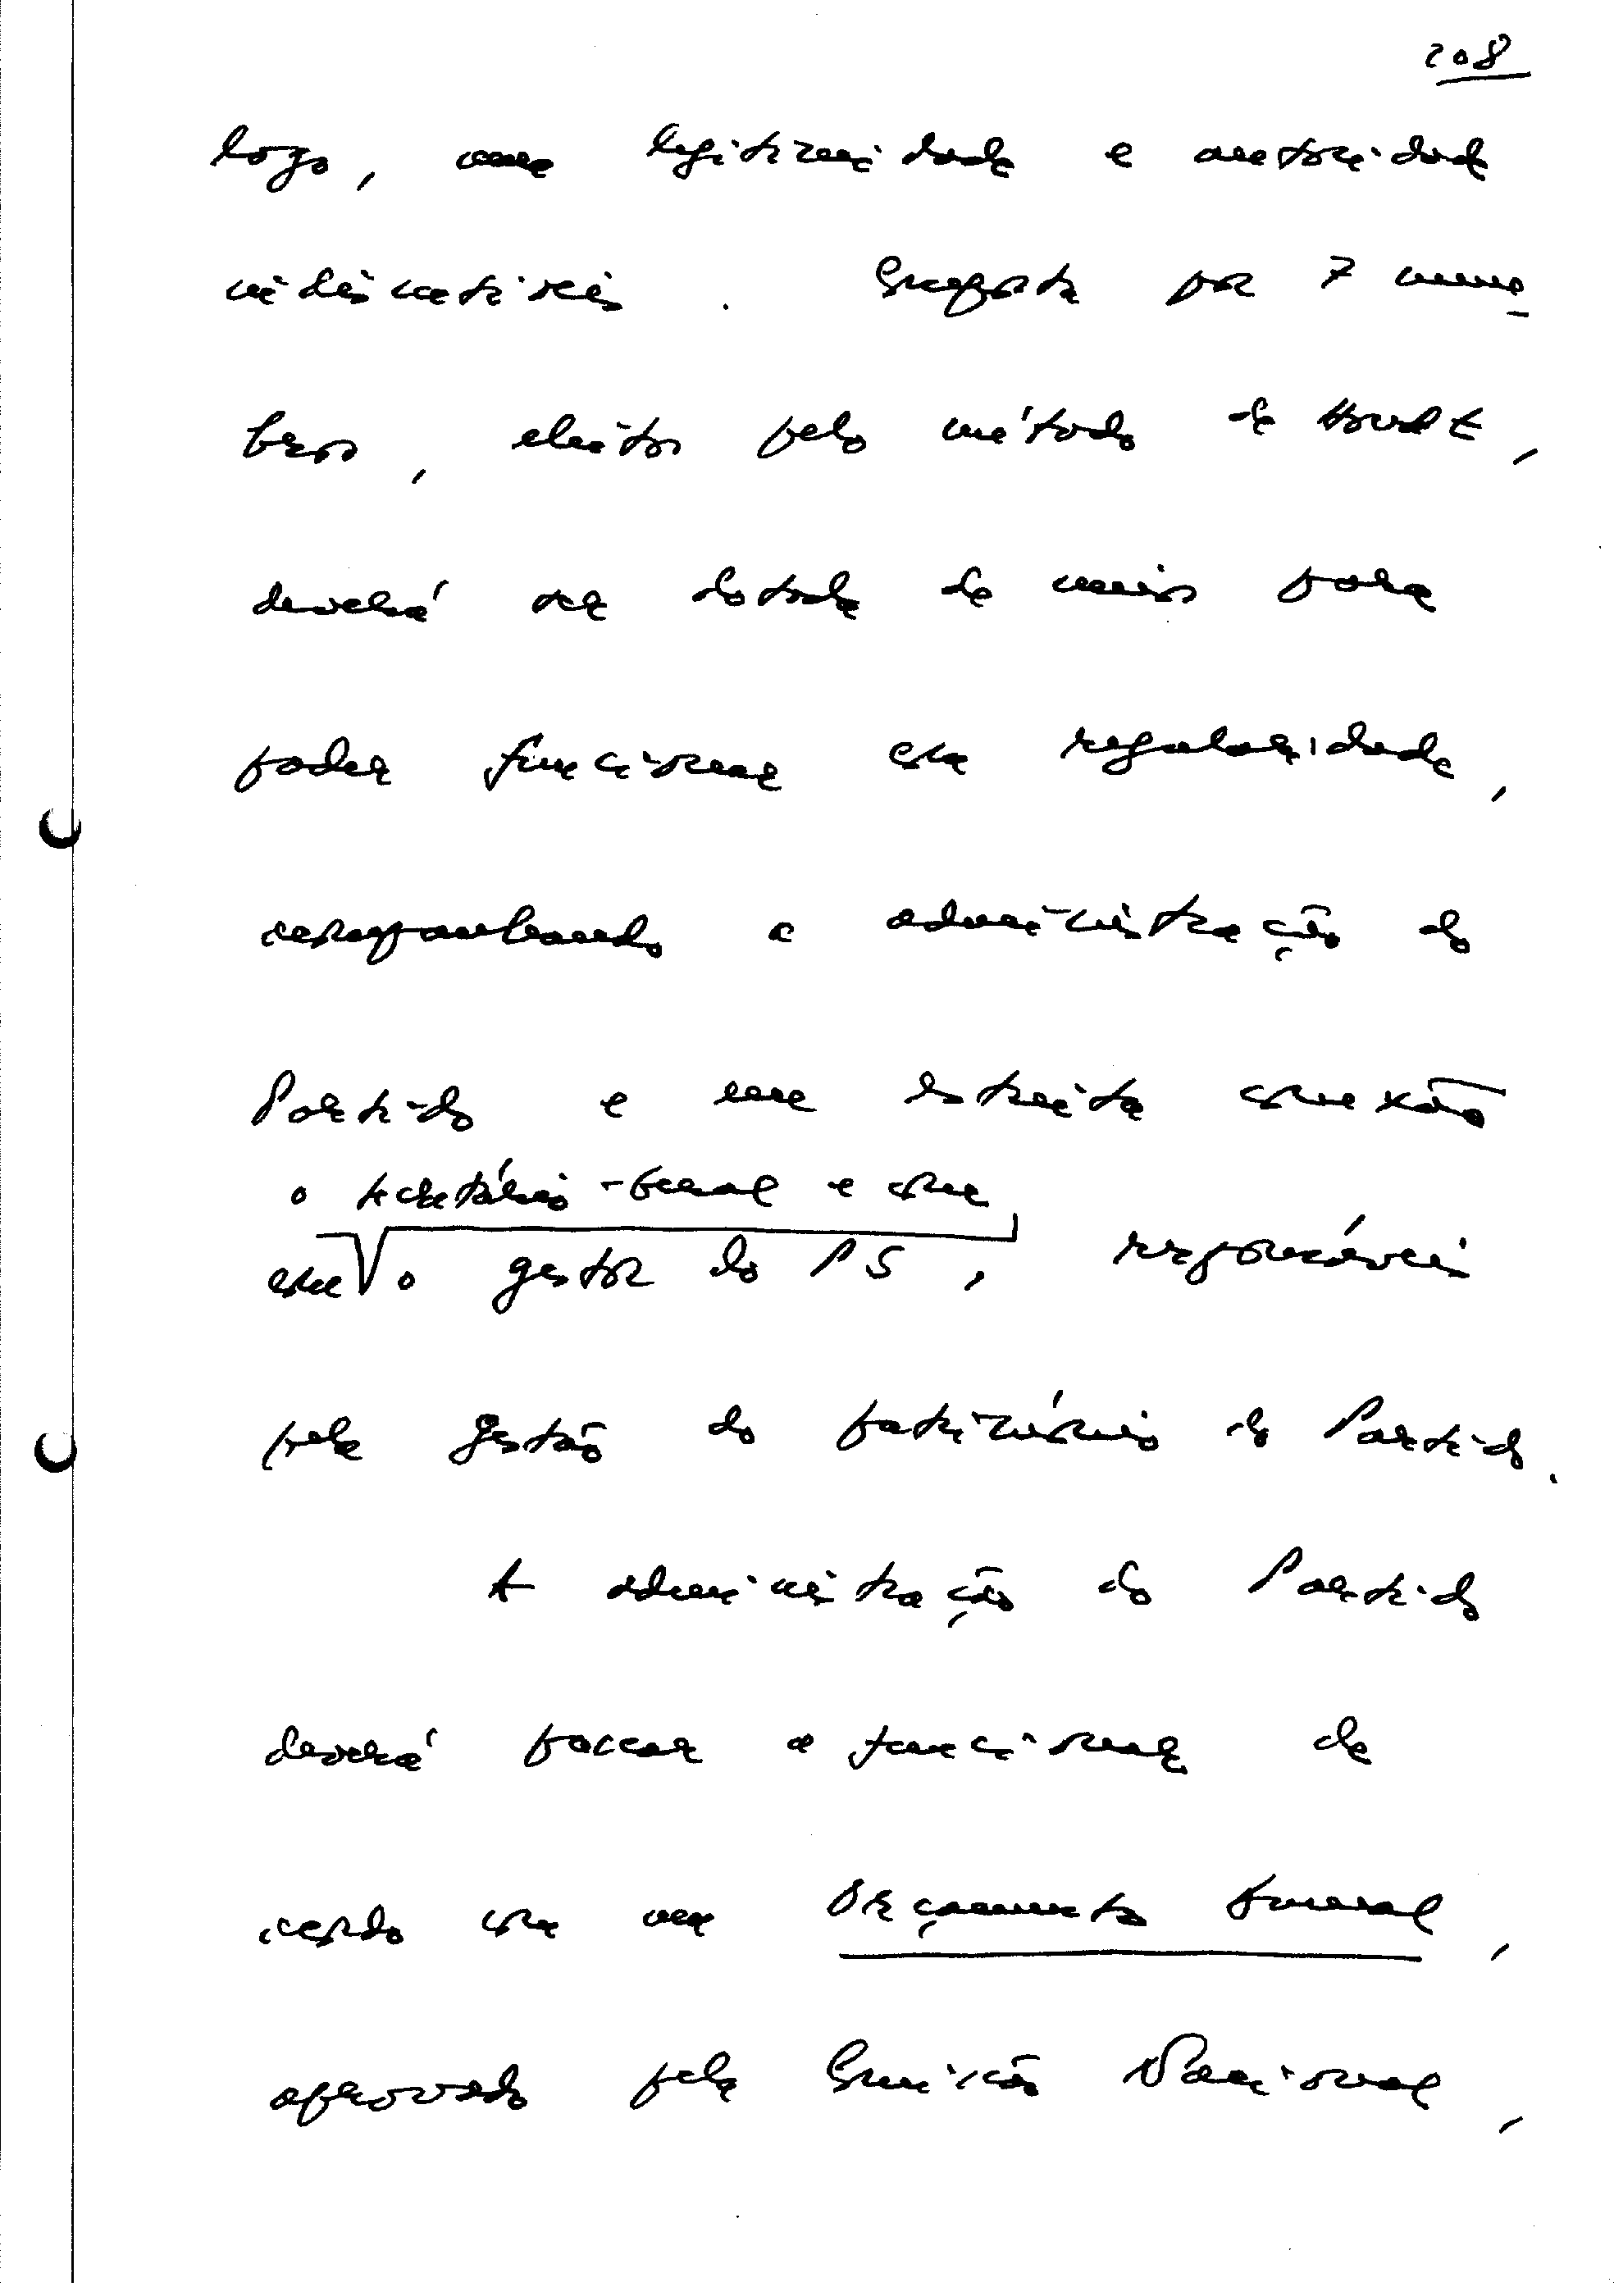 208
logo, uma legitimidade e autoridade
indiscutíveis. Composta por 7 mem-
bros, eleitos pelo método de Hondt,
deverá ser dotada de meios para
poder funcionar com regularidade,
acompanhando a administração do
Partido e em estreita conexão
o secretário-geral e com
com o gestor do PS, responsáveis
pela gestão do património do Partido.
A administração do Partido
deverá passar a funcionar de
acordo com um Orçamento Anual,
aprovado pela Comissão Nacional,